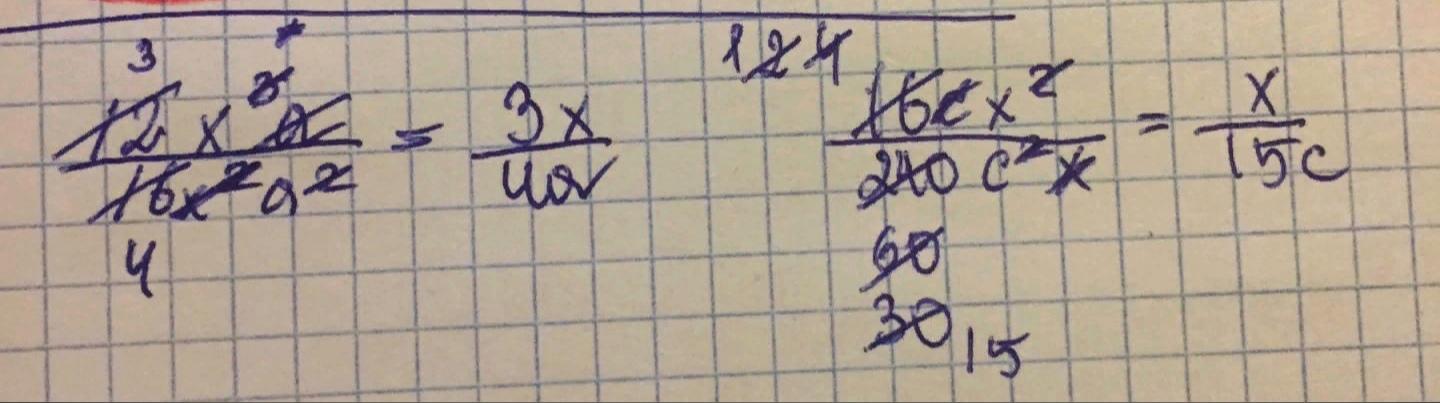 3 1 2 4
12 x³ a / 16 x² a² = 3x / 4a 16 c x² / 240 c² x = x / 15c
4 60
30 15